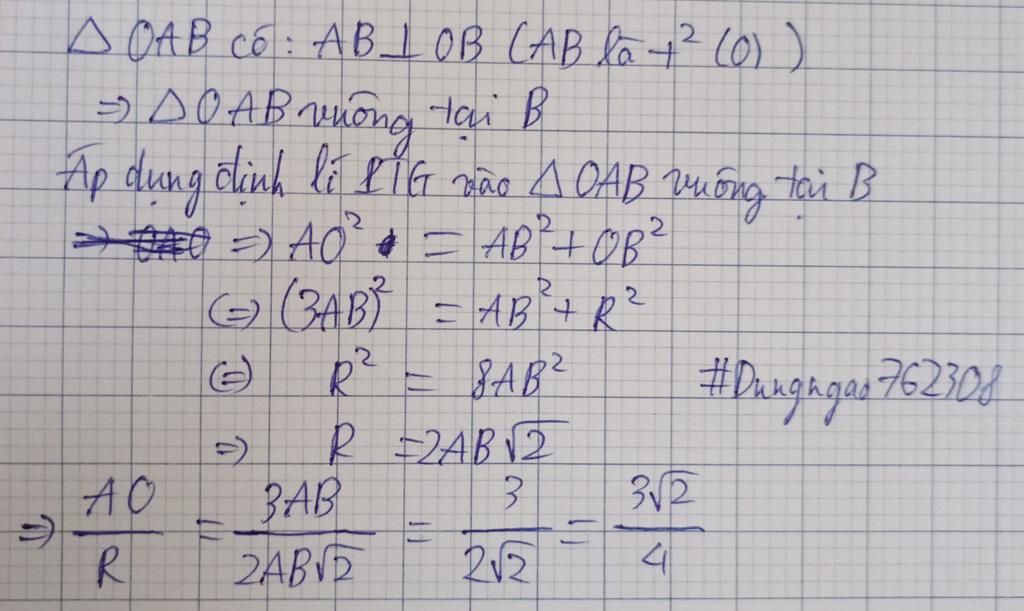 △ OAB có: AB ⊥ OB (AB là t² (O))
⇒ △ OAB vuông tại B
Áp dụng định lí PTG vào △ OAB vuông tại B
⇒ AO² = AB² + OB²
(=) (3AB)² = AB² + R²
(=) R² = 8AB²
#Dungngao762308
⇒ R = 2AB√2
⇒ AO/R = 3AB/2AB√2 = 3/2√2 = 3√2/4